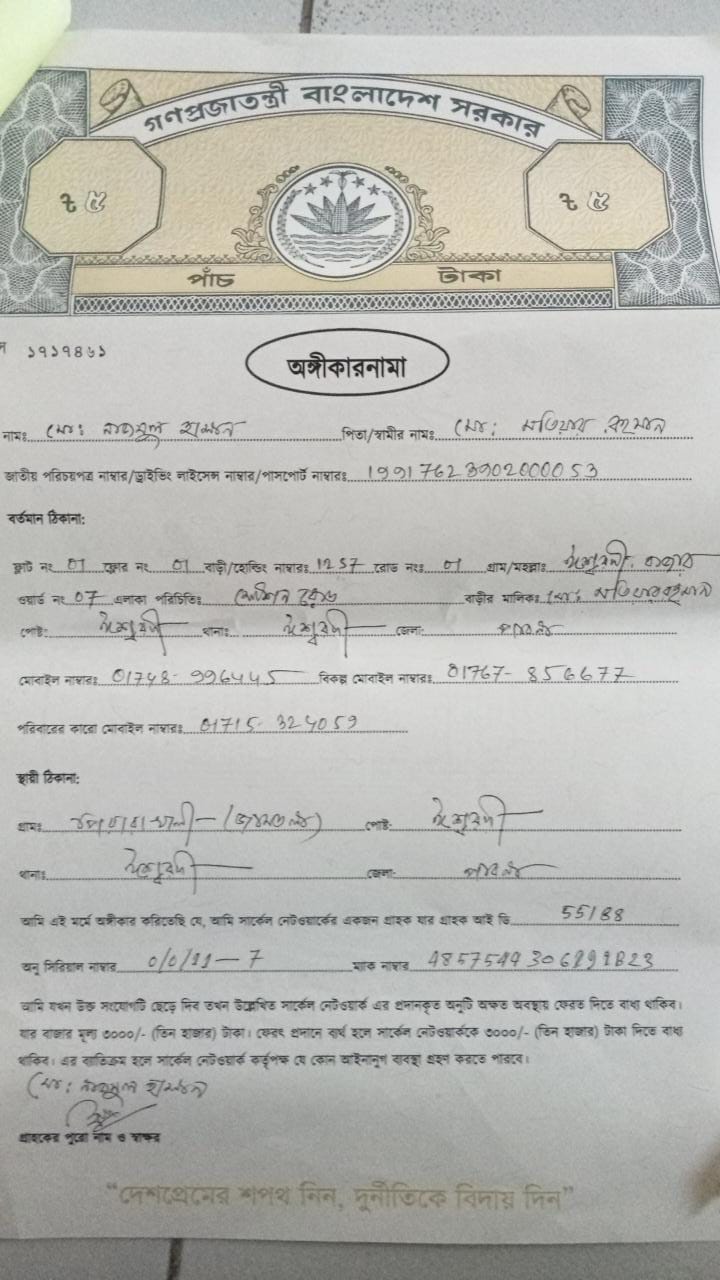 গণপ্রজাতন্ত্রী বাংলাদেশ সরকার
৳ ৫ ৳ ৫
পাঁচ টাকা
১৭১৭৪৬১
অঙ্গীকারনামা
নামঃ মোঃ নাজমুল হাসান পিতা/স্বামীর নামঃ মোঃ মতিয়ার রহমান
জাতীয় পরিচয়পত্র নাম্বার/ড্রাইভিং লাইসেন্স নাম্বার/পাসপোর্ট নাম্বারঃ 19917623902000053
বর্তমান ঠিকানা:
ফ্লাট নং 01 ফ্লোর নং 01 বাড়ী/হোল্ডিং নাম্বারঃ 1257 রোড নংঃ 01 গ্রাম/মহল্লাঃ ঈশ্বরদী, বাজার
ওয়ার্ড নং 07 এলাকা পরিচিতিঃ স্টেশন রোড বাড়ীর মালিকঃ মোঃ মতিয়ার রহমান
পোষ্ট: ঈশ্বরদী থানাঃ ঈশ্বরদী জেলা: পাবনা
মোবাইল নাম্বারঃ 01748-996445 বিকল্প মোবাইল নাম্বারঃ 01767-856677
পরিবারের কারো মোবাইল নাম্বারঃ 01715-324059
স্থায়ী ঠিকানা:
গ্রামঃ পোষ্ট: ঈশ্বরদী
থানাঃ ঈশ্বরদী জেলা: পাবনা
আমি এই মর্মে অঙ্গীকার করিতেছি যে, আমি সার্কেল নেটওয়ার্কের একজন গ্রাহক যার গ্রাহক আই ডি 55188
অনু সিরিয়াল নাম্বার 0/0/11-7 ম্যাক নাম্বার
আমি যখন উক্ত সংযোগটি ছেড়ে দিব তখন উল্লেখিত সার্কেল নেটওয়ার্ক এর প্রদানকৃত অনুটি অক্ষত অবস্থায় ফেরত দিতে বাধ্য থাকিব।
যার বাজার মূল্য ৩০০০/- (তিন হাজার) টাকা। ফেরৎ প্রদানে ব্যর্থ হলে সার্কেল নেটওয়ার্ককে ৩০০০/- (তিন হাজার) টাকা দিতে বাধ্য
থাকিব। এর ব্যতিক্রম হলে সার্কেল নেটওয়ার্ক কর্তৃপক্ষ যে কোন আইনানুগ ব্যবস্থা গ্রহণ করতে পারবে।
মোঃ নাজমুল হাসান
গ্রাহকের পুরো নাম ও স্বাক্ষর
"দেশপ্রেমের শপথ নিন, দুর্নীতিকে বিদায় দিন"